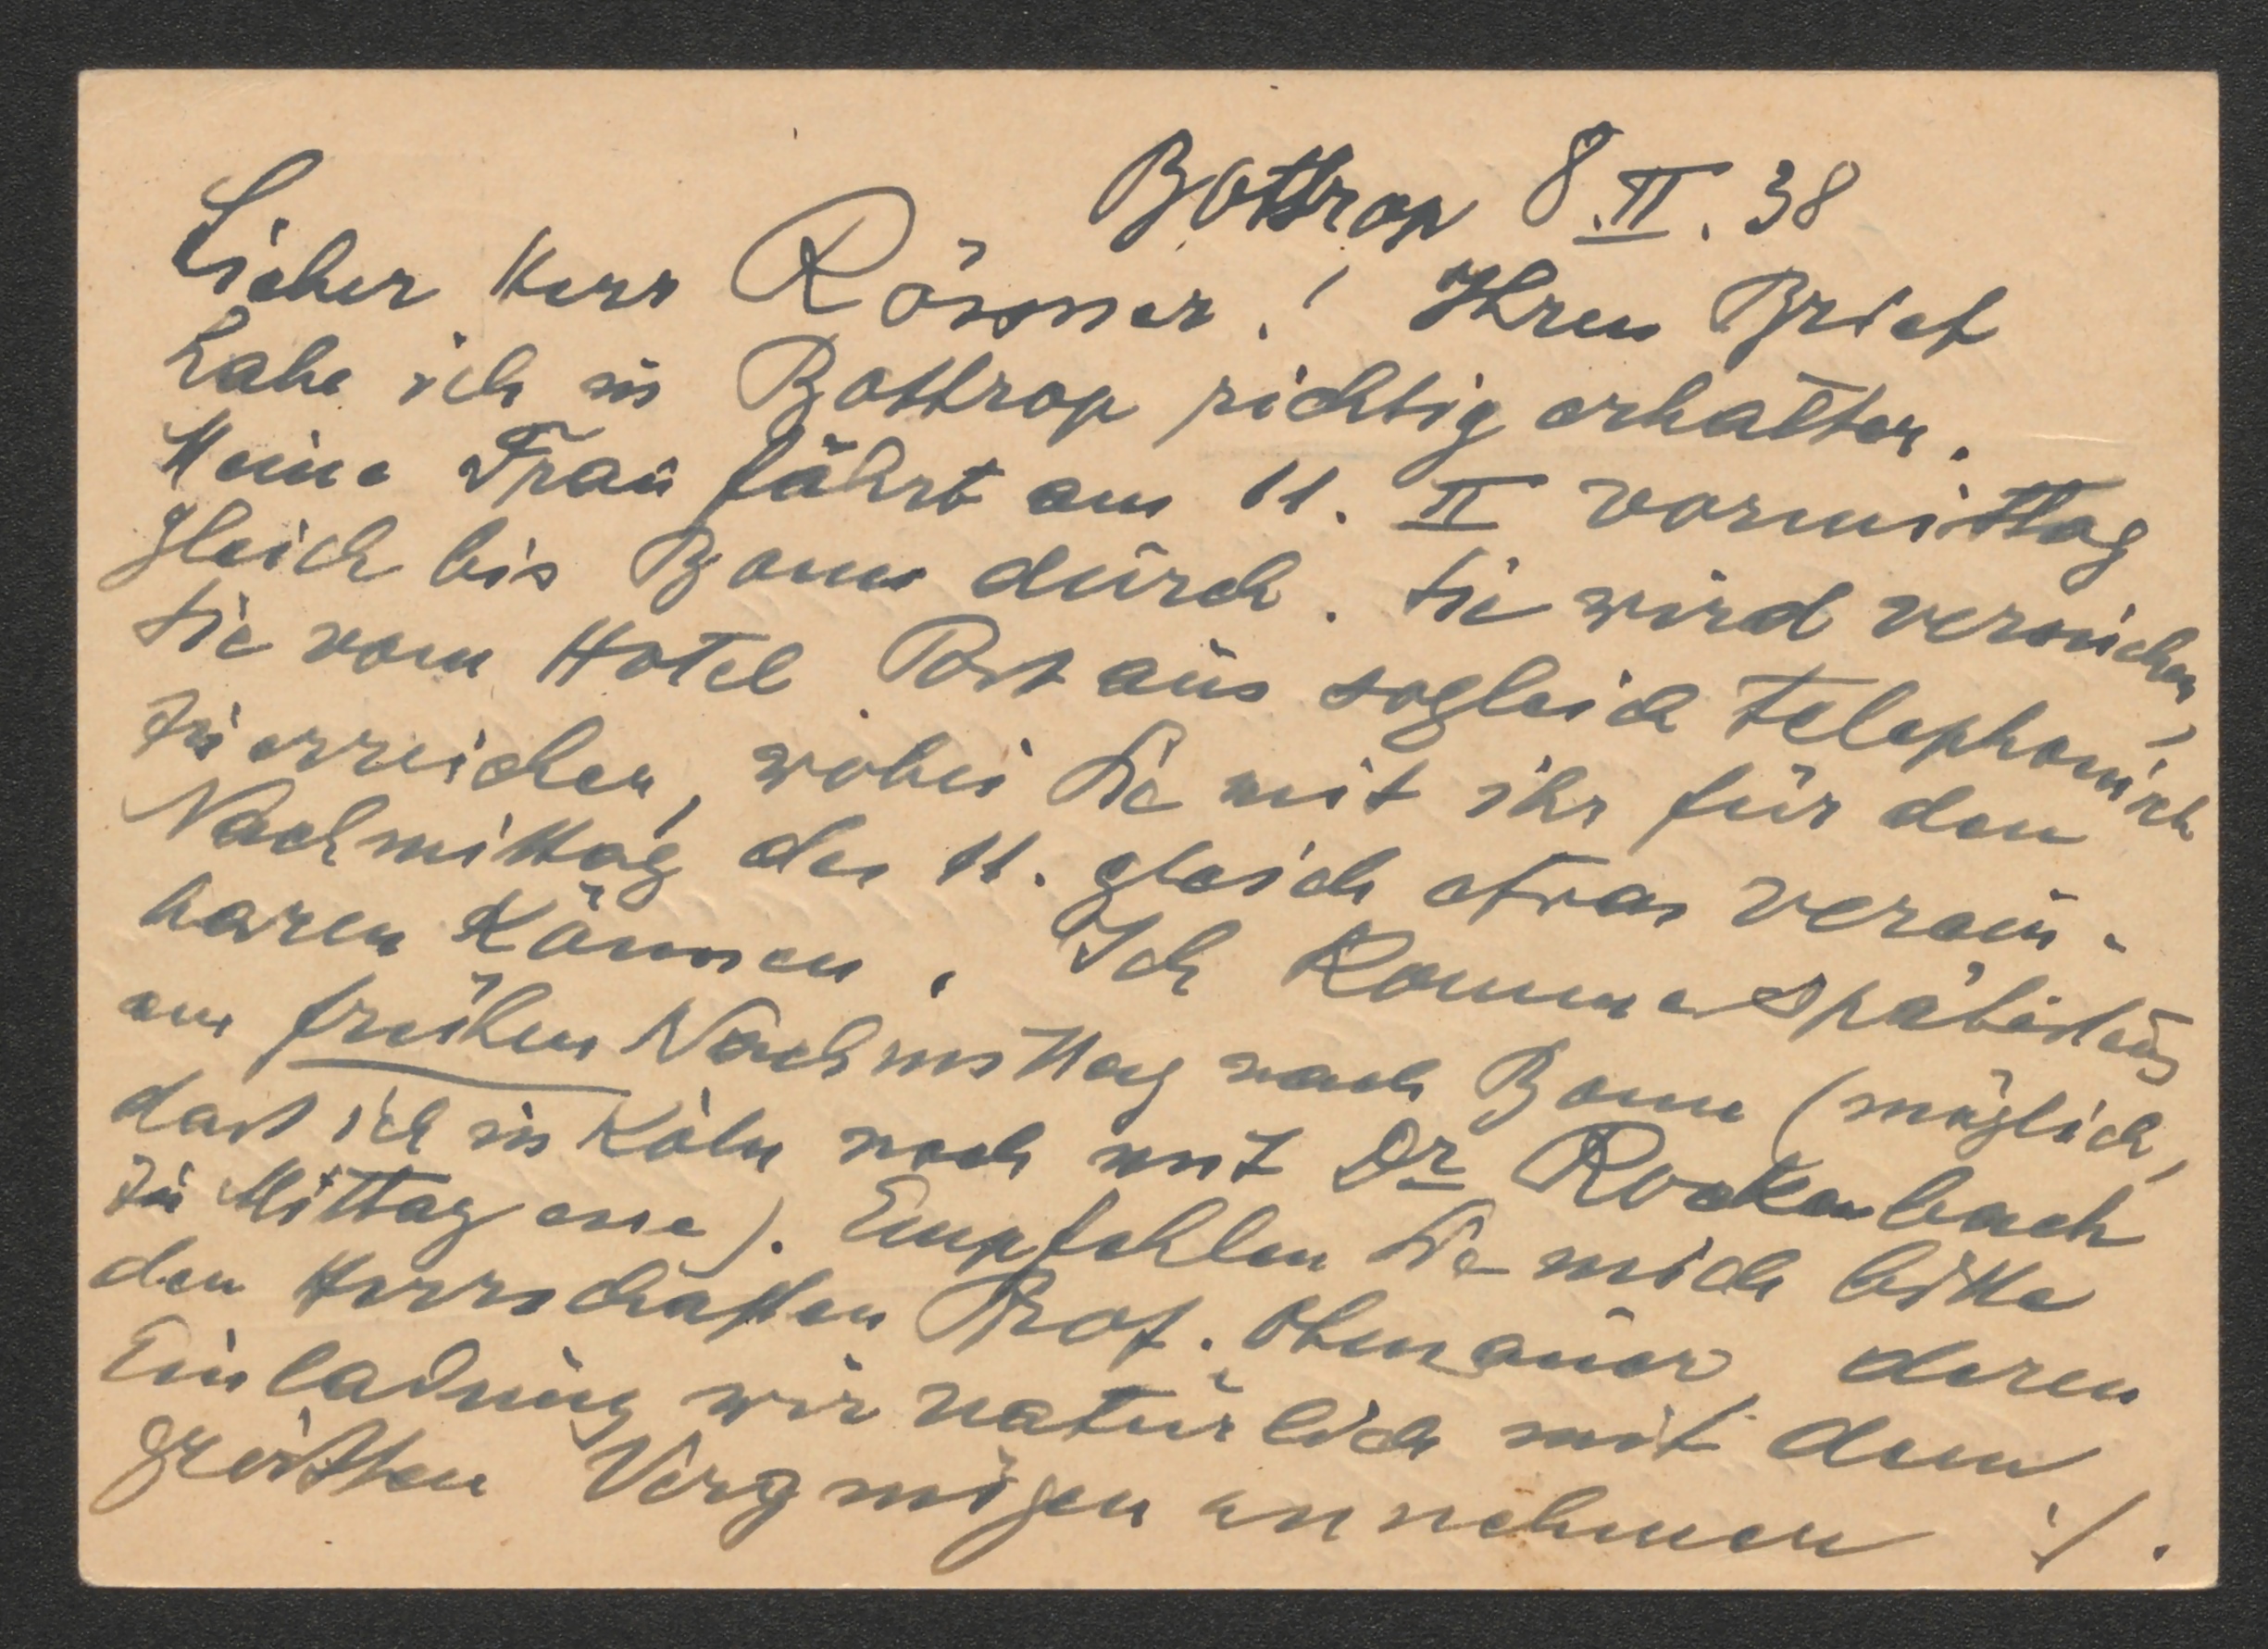 Bottrop 8.II.38
Lieber Herr Rössner! Ihren Brief
habe ich in Bottrop richtig erhalten.
Meine Frau fährt am 11. II vormittag
gleich bis Bonn durch. Sie wird versuchen,
Sie vom Hotel Post aus sogleich telephonisch
zu erreichen, wobei Sie mit ihr für den
Nachmittag des 11. gleich etwas verein-
baren können. Ich komme spätestens
am frühen Nachmittag nach Bonn (möglich,
dass ich in Köln noch mit Dr Rockenbach
zu Mittag esse). Empfehlen Sie mich bitte
den Herrschaften Prof. Obenauer, deren
Einladung wir natürlich mit dem
grössten Vergnügen annehmen ./.